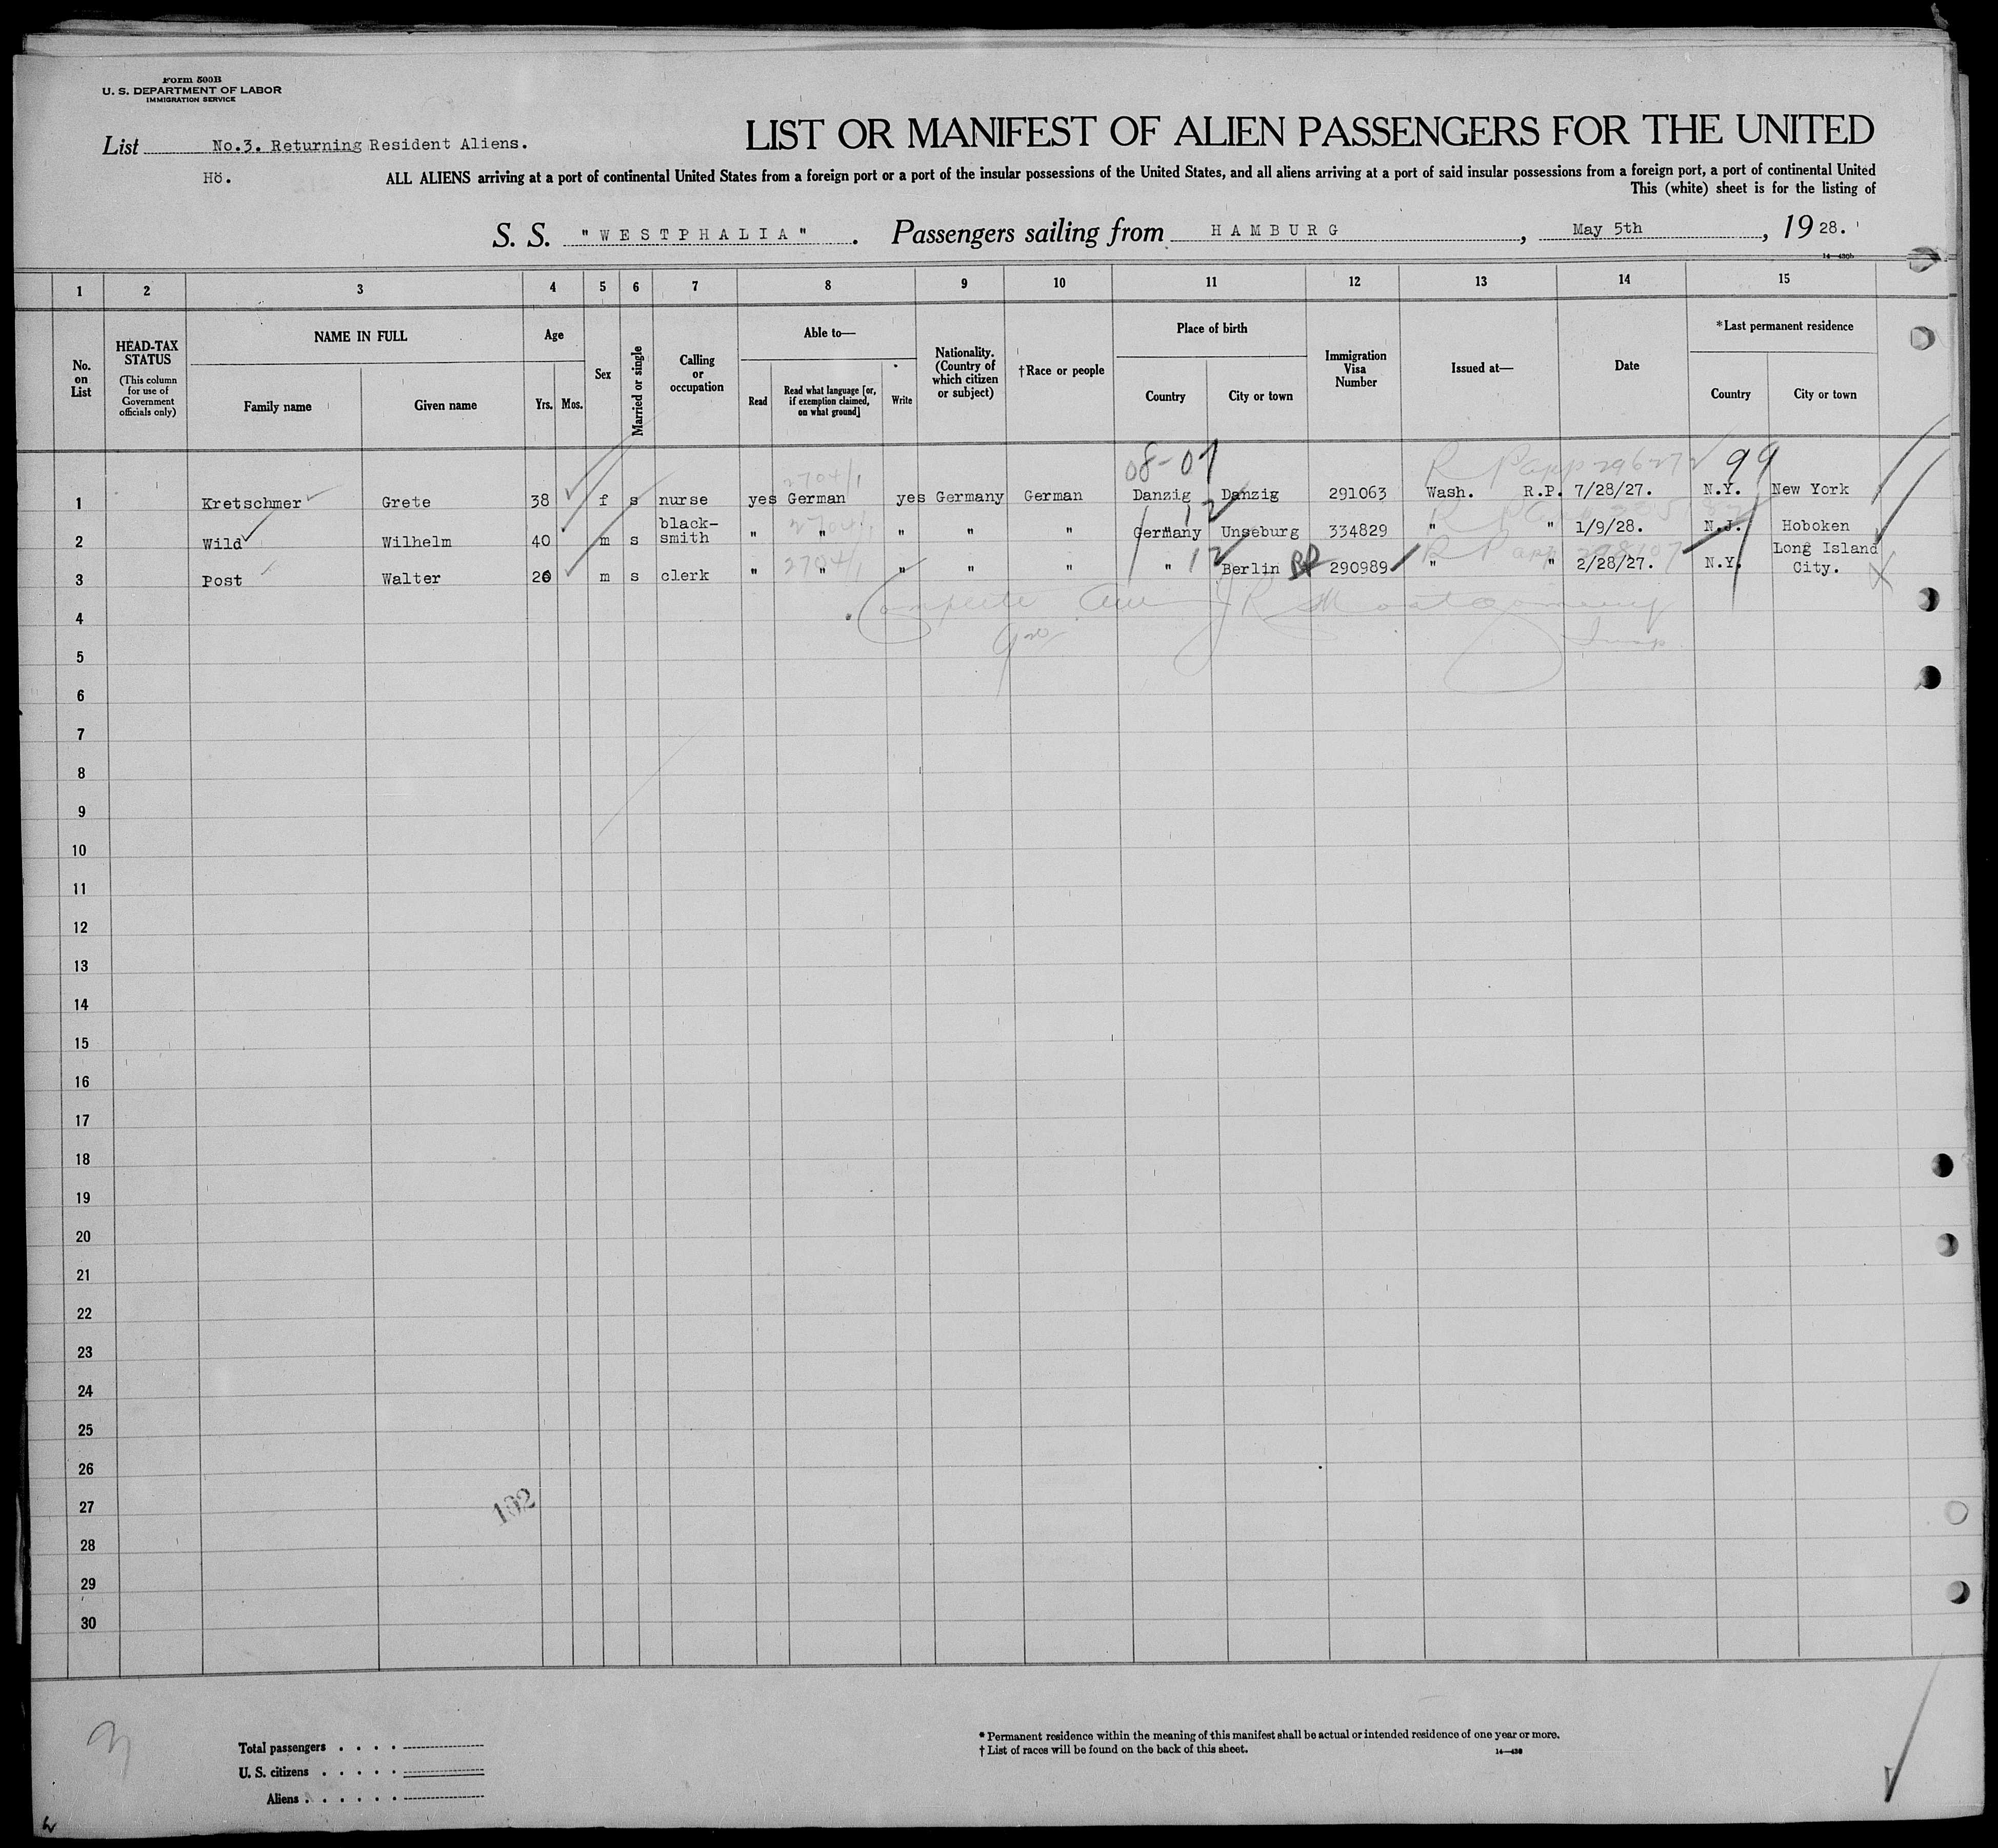 Form 500B
U. S. DEPARTMENT OF LABOR
IMMIGRATION SERVICE
List No.3. Returning Resident Aliens.
Hö.
LIST OR MANIFEST OF ALIEN PASSENGERS FOR THE UNITED
ALL ALIENS arriving at a port of continental United States from a foreign port or a port of the insular possessions of the United States, and all aliens arriving at a port of said insular possessions from a foreign port, a port of continental United
This (white) sheet is for the listing of
S. S. "WESTPHALIA". Passengers sailing from HAMBURG, May 5th, 1928.
14—430b
1 2 3 4 5 6 7 8 9 10 11 12 13 14 15
No. on List
HEAD-TAX STATUS
(This column for use of Government officials only)
NAME IN FULL
Family name Given name
Age
Yrs. Mos.
Sex
Married or single
Calling or occupation
Able to—
Read
Read what language [or, if exemption claimed, on what ground]
Write
Nationality. (Country of which citizen or subject)
†Race or people
Place of birth
Country City or town
Immigration Visa Number
Issued at—
Date
*Last permanent residence
Country City or town
08-01 R P app 296272 99
2704/1
1 Kretschmer Grete 38 f s nurse yes German yes Germany German Danzig Danzig 291063 Wash. R.P. 7/28/27. N.Y. New York
12
2704/1
2 Wild Wilhelm 40 m s black-smith " " " " " Germany Unseburg 334829 " " 1/9/28. N.J. Hoboken
12 R P app
2704/1
3 Post Walter 26 m s clerk " " " " " " Berlin 290989 " " 2/28/27. N.Y. Long Island City.
4 Complete J R Montgomery
5 Insp
6
7
8
9
10
11
12
13
14
15
16
17
18
19
20
21
22
23
24
25
26
27
102
28
29
30
Total passengers . . . .
U. S. citizens . . . . .
Aliens . . . . . .
* Permanent residence within the meaning of this manifest shall be actual or intended residence of one year or more.
† List of races will be found on the back of this sheet.
14—430